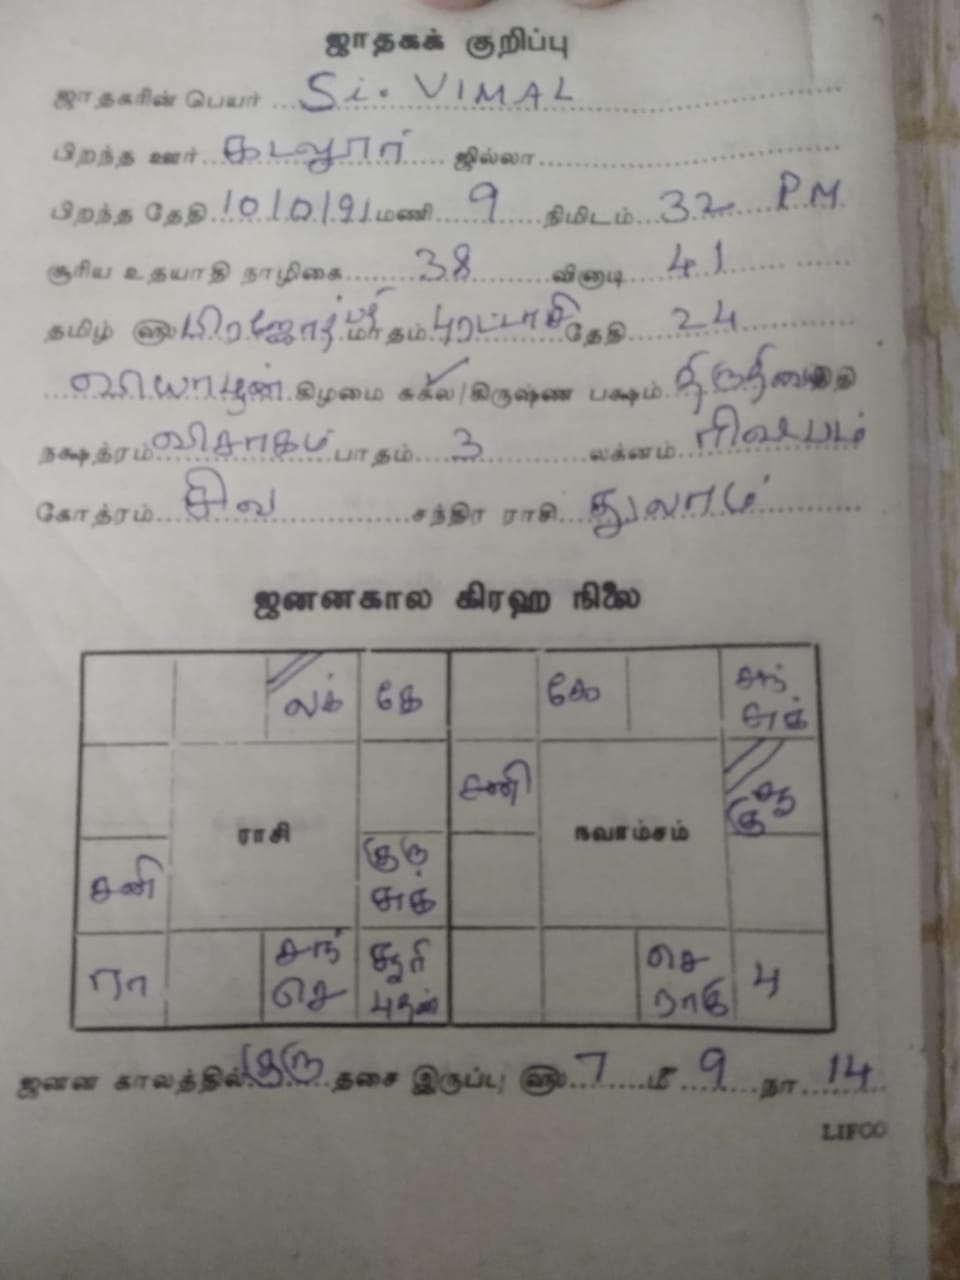 ஜாதகக் குறிப்பு
ஜாதகரின் பெயர் Si. VIMAL
பிறந்த ஊர் கடலூர் ஜில்லா
பிறந்த தேதி 10/10/91 மணி 9 நிமிடம் 32 PM
சூரிய உதயாதி நாழிகை 38 வினாடி 41
தமிழ் ௵ மாதம் புரட்டாசி தேதி 24
வியாழன் கிழமை சுக்ல/கிருஷ்ண பக்ஷம் திதி
நக்ஷத்ரம் விசாகம் பாதம் 3 லக்னம் ரிஷபம்
கோத்ரம் சிவ சந்திர ராசி துலாம்
ஜனனகால கிரஹ நிலை
லக் கே கே சந் சுக்
சனி
ராசி நவாம்சம் குரு
சனி குரு சுக்
ரா சந் செ சூரி புதன் செ ராகு பு
ஜனன காலத்தில் குரு தசை இருப்பு ௵ 7 மீ 9 நா 14
LIFCO